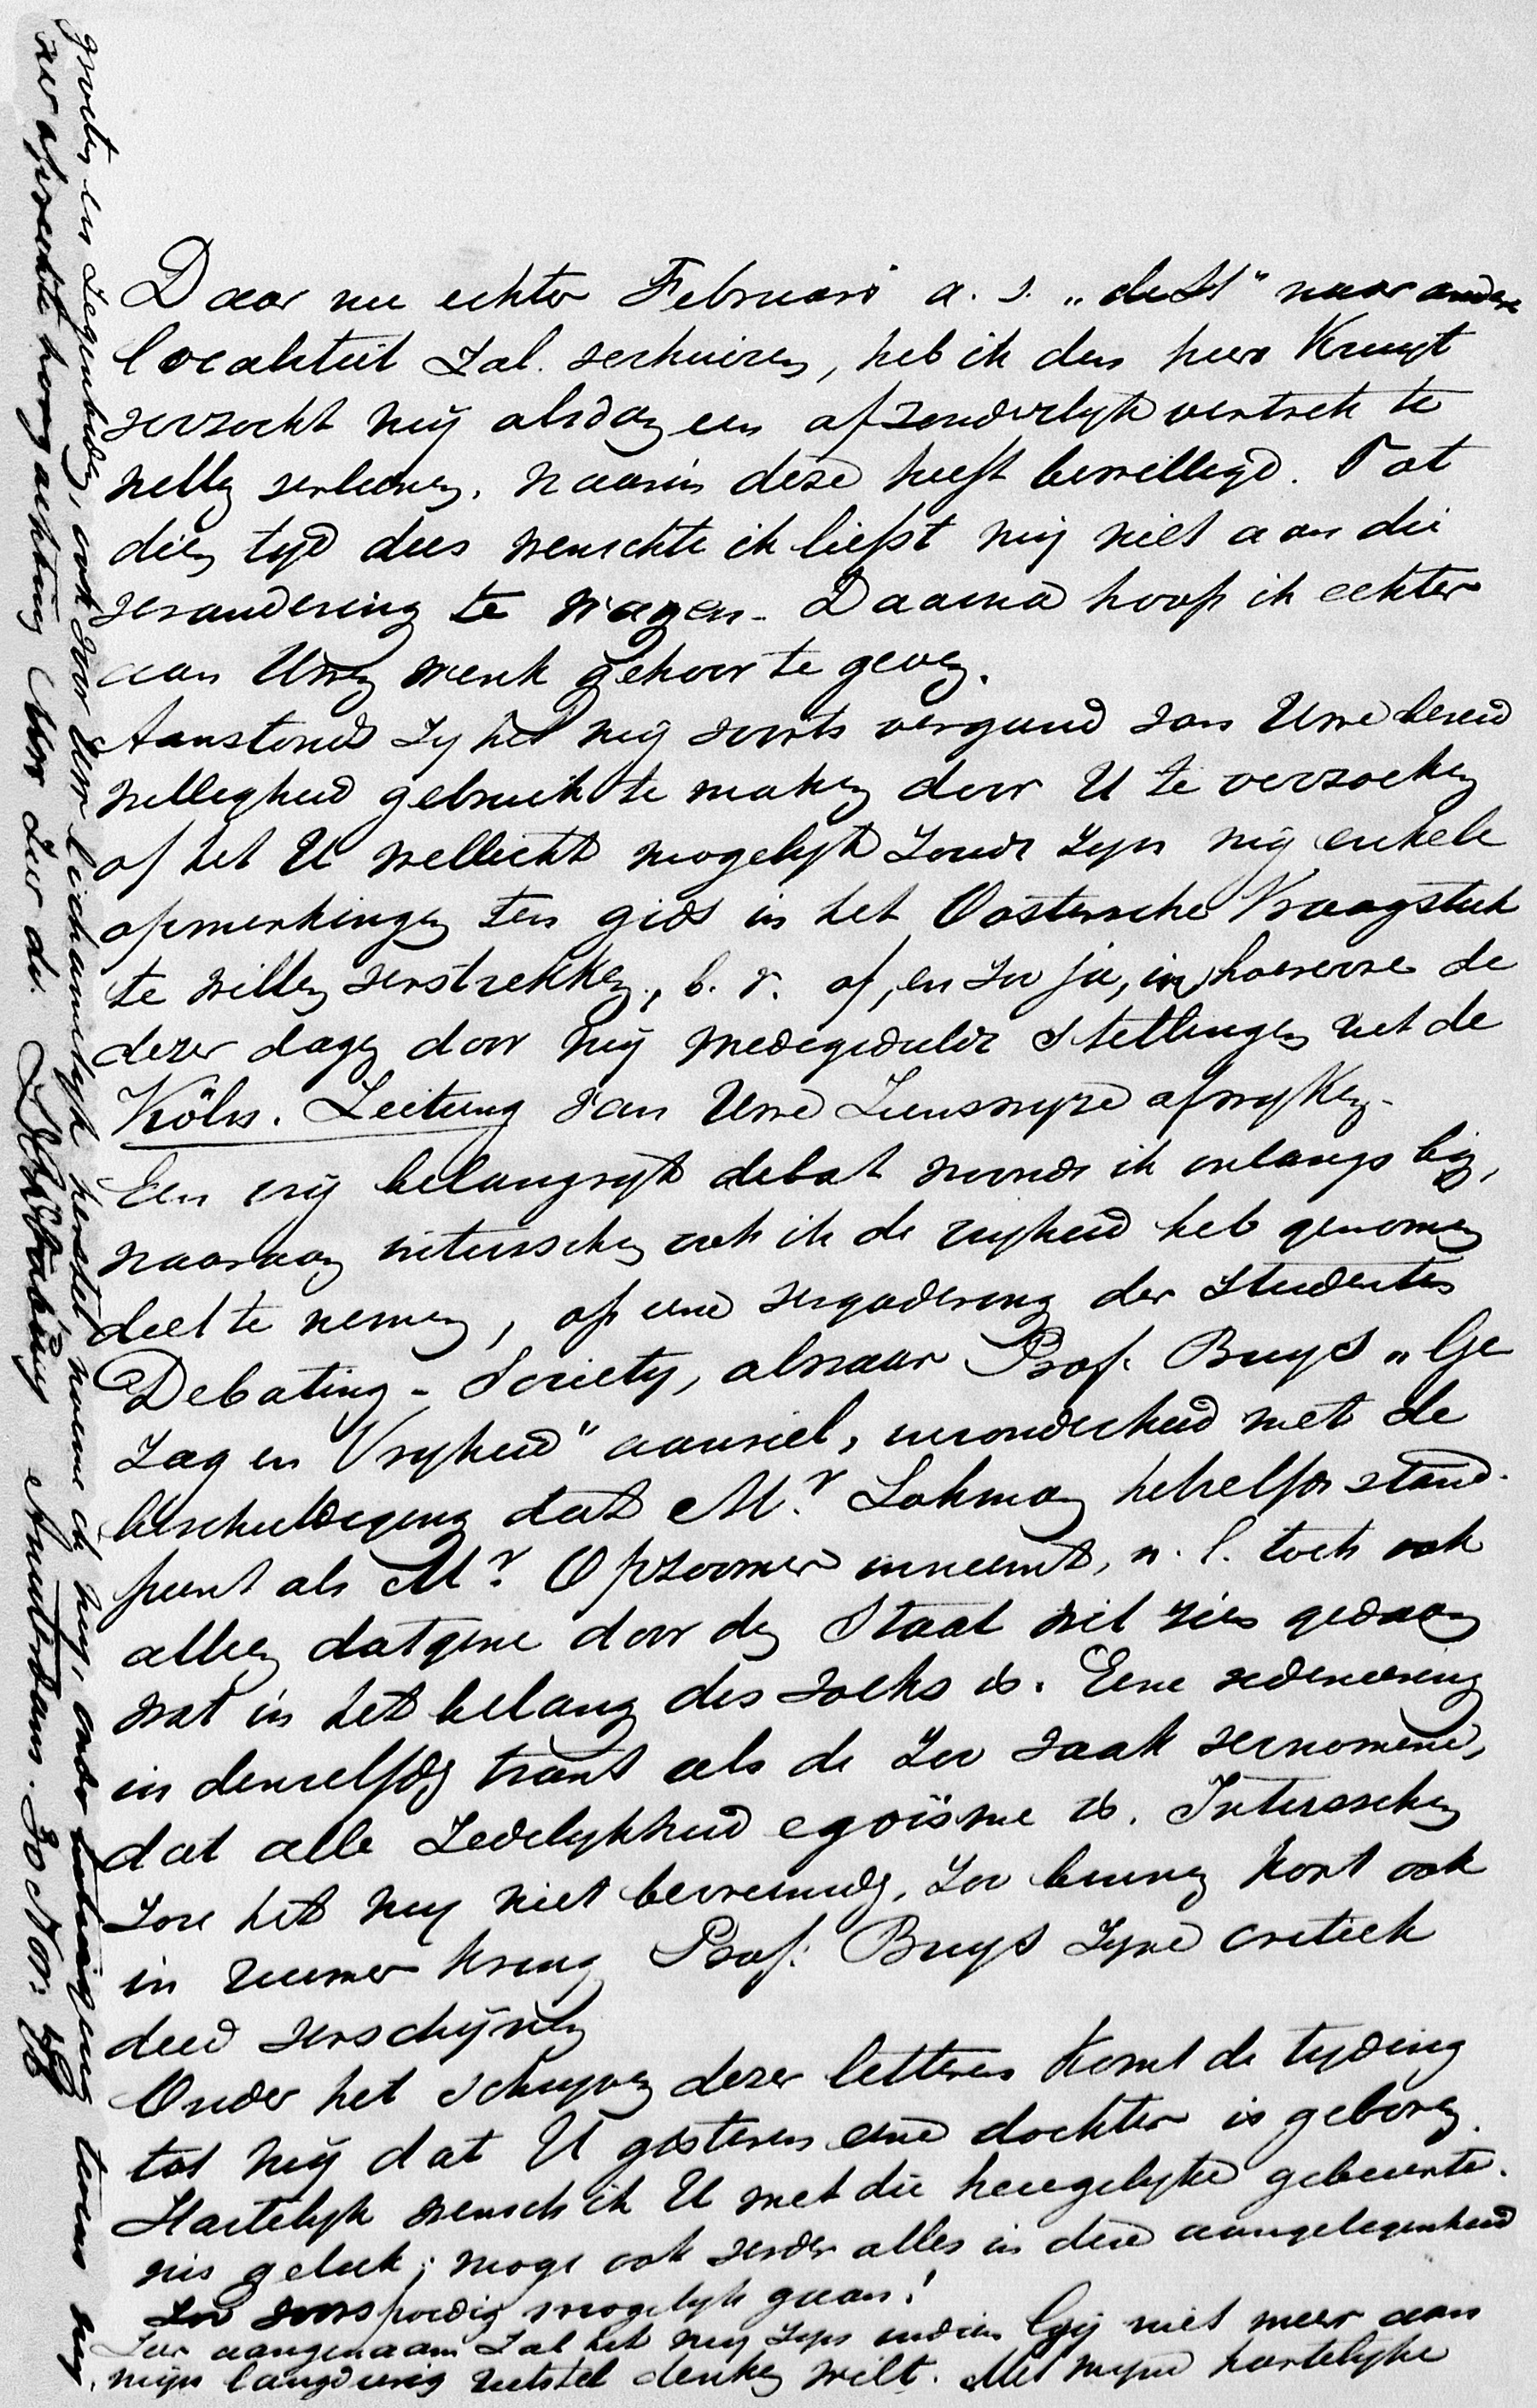 Daar nu echter Februari a. s. „de St" naar andere
localiteit zal verhuizen, heb ik den heer Kruyt
verzocht mij alsdan een afzonderlyk vertrek te
willen verleenen, waarin deze heeft bewilligd. Tot
dien tyd dus wenschte ik liefst mij niet aan die
verandering te wagen. Daarna hoop ik echter
aan Uwen wenk gehoor te geven.
Aanstonds zy het mij voorts vergund van Uwe bereid
willigheid gebruik te maken door U te verzoeken
of het U wellicht mogelyk zoude zyn mij enkele
opmerkingen ten gids in het Oostersche Vraagstuk
te willen verstrekken, b. v. of, en zoo ja, in hoeverre de
dezer dagen door mij medegedeelde Stellingen uit de
Köln. Zeitung van Uwe Zienswyze afwyken.
Een vrij belangryk debat woonde ik onlangs bij,
waaraan intusschen ook ik de vryheid heb genomen
deel te nemen, op eene vergadering der Studenten
Debating-Society, alwaar Prof. Buys „Ge
zag en Vryheid" aanviel, inzonderheid met de
beschuldiging dat Mr. Lohman hetzelfde stand-
punt als Mr. Opzoomer inneemt, n. l. toch ook
alleen datgene door den Staat wil zien gedaan
wat in het belang des volks is. Eene redeneering
in denzelfden trant als de zoo vaak vernomene,
dat alle Zedelykheid egoïsme is. Intusschen
zou het my niet bevreemden, zoo binnen kort ook
in ruimer kring Prof. Buys zyne critiek
deed verschijnen
Onder het schryven dezer letteren komt de tyding
tot mij dat U gisteren eene dochter is geboren.
Hartelyk wensch ik U met die heugelyke gebeurte-
nis geluk; moge ook verder alles in deze aangelegenheid
zoo voorspoedig mogelyk gaan!
Zeer aangenaam zal het my zyn indien Gij niet meer aan
mijn langdurig uitstel denken wilt. Met myne hartelyke
groeten en zegenbeden, ook voor Uw lichamelyk herstel noeme ik my, onder betuiging tevens van my
ner oprechte hoogachting Uw Zeer dw.
Amsterdam. 30 Nov.